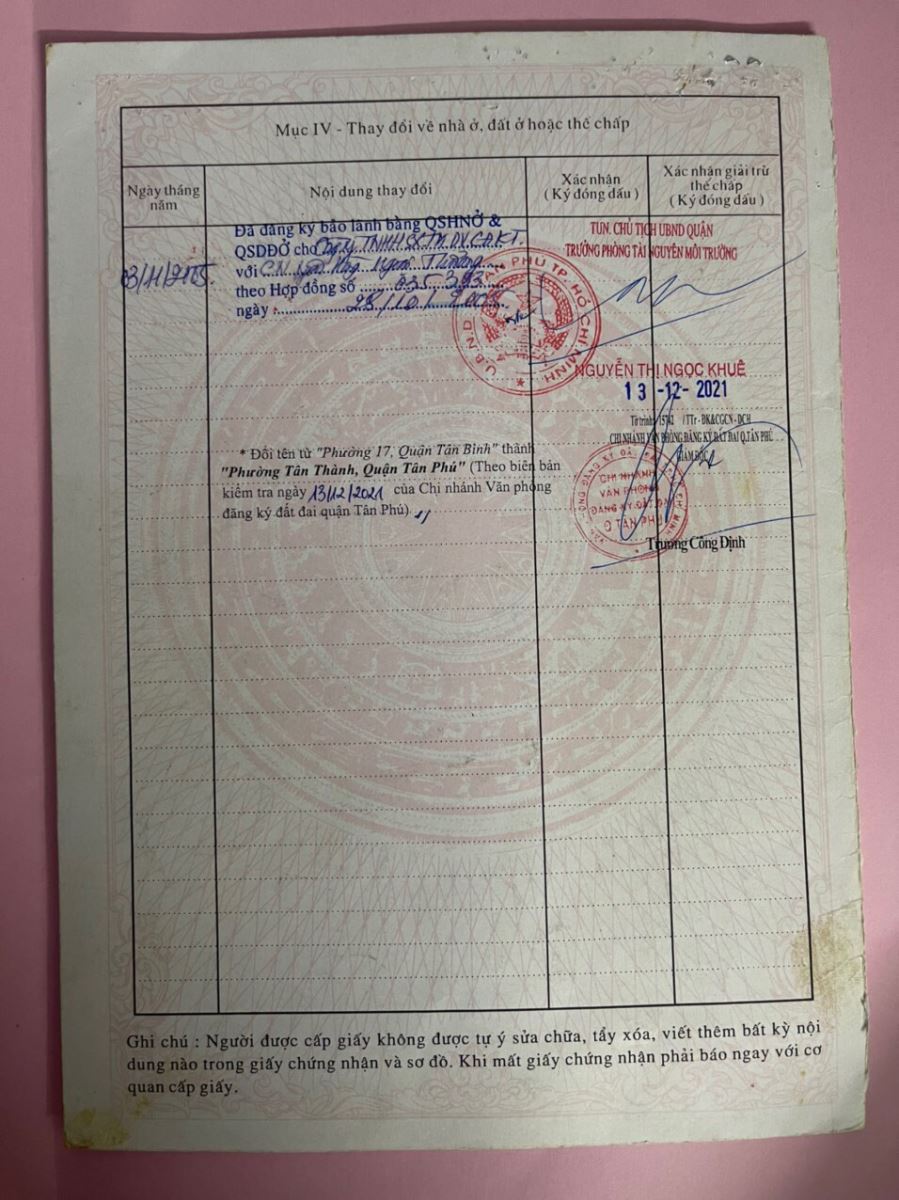 Mục IV - Thay đổi về nhà ở, đất ở hoặc thế chấp
Ngày tháng năm
Nội dung thay đổi
Xác nhận
( Ký đóng dấu )
Xác nhận giải trừ
thế chấp
( Ký đóng dấu )
03/11/2005.
Đã đăng ký bảo lãnh bằng QSHNỞ &
QSDĐỞ cho Công ty TNHH SX TM DV
với C.N
theo Hợp đồng số
ngày 28/10/2005
TUN. CHỦ TỊCH UBND QUẬN
TRƯỞNG PHÒNG TÀI NGUYÊN MÔI TRƯỜNG
U.B.N.D TÂN PHÚ TP. HỒ CHÍ MINH
NGUYỄN THỊ NGỌC KHUÊ
13 -12- 2021
Tờ trình: /TTr - ĐK&CGCN - DCH
CHI NHÁNH VĂN PHÒNG ĐĂNG KÝ ĐẤT ĐAI Q.TÂN PHÚ
GIÁM ĐỐC
* Đổi tên từ "Phường 17, Quận Tân Bình" thành
"Phường Tân Thành, Quận Tân Phú" (Theo biên bản
kiểm tra ngày 13/12/2021 của Chi nhánh Văn phòng
đăng ký đất đai quận Tân Phú)
CHI NHÁNH
VĂN PHÒNG
ĐĂNG KÝ ĐẤT ĐAI
Q TÂN PHÚ
Trương Công Định
Ghi chú : Người được cấp giấy không được tự ý sửa chữa, tẩy xóa, viết thêm bất kỳ nội
dung nào trong giấy chứng nhận và sơ đồ. Khi mất giấy chứng nhận phải báo ngay với cơ
quan cấp giấy.